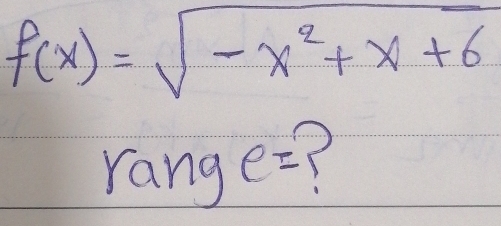 f(x) = √(-x² + x + 6)
range=?